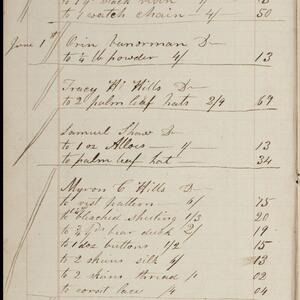 to 1 watch chain 4/ 50
June 1st Orin Vanorman Dr
to ¼ lb powder 4/ 13
Tracy W Hills Dr
to 2 palm leaf hats 2/4 69
Samuel Shaw Dr
to 1 oz Alloes 1/ 13
to palm leaf hat 34
Myron C Hills Dr
to vest pattern 6/ 75
to bleached sheeting 1/3 20
to ¾ yds bear duck 2/ 19
to 1 doz buttons 1/2 15
to 2 skins silk 6/ 13
to 2 skins thread 1/ 02
to corset lace 4/ 04